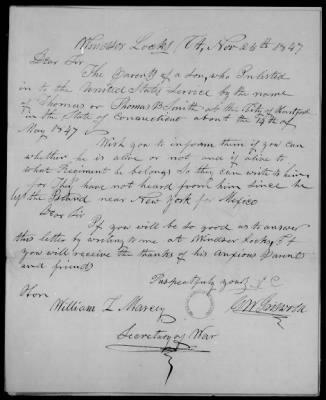 Windsor Locks Ct, Nov 24th 1847
Dear Sir
The Parents of a son, who Enlisted
in to the United States Service by the name
of Thomas or Thomas B Smith at the City of Hartford
in the State of Connecticut about the 4th of
May 1847
Wish you to inform them if you can
whether he is alive or not and if alive to
what Regiment he belongs So they can write to him,
for They have not heard from him since he
left the Island near New York for Mexico
Dear Sir
If you will be so good as to answer
this letter by writing to me at Windsor Locks, Ct
you will receive the thanks of his Anxious Parents
and friends
Respectfuly yours
Hon
William L Marcy
Griswold
Secretary of War